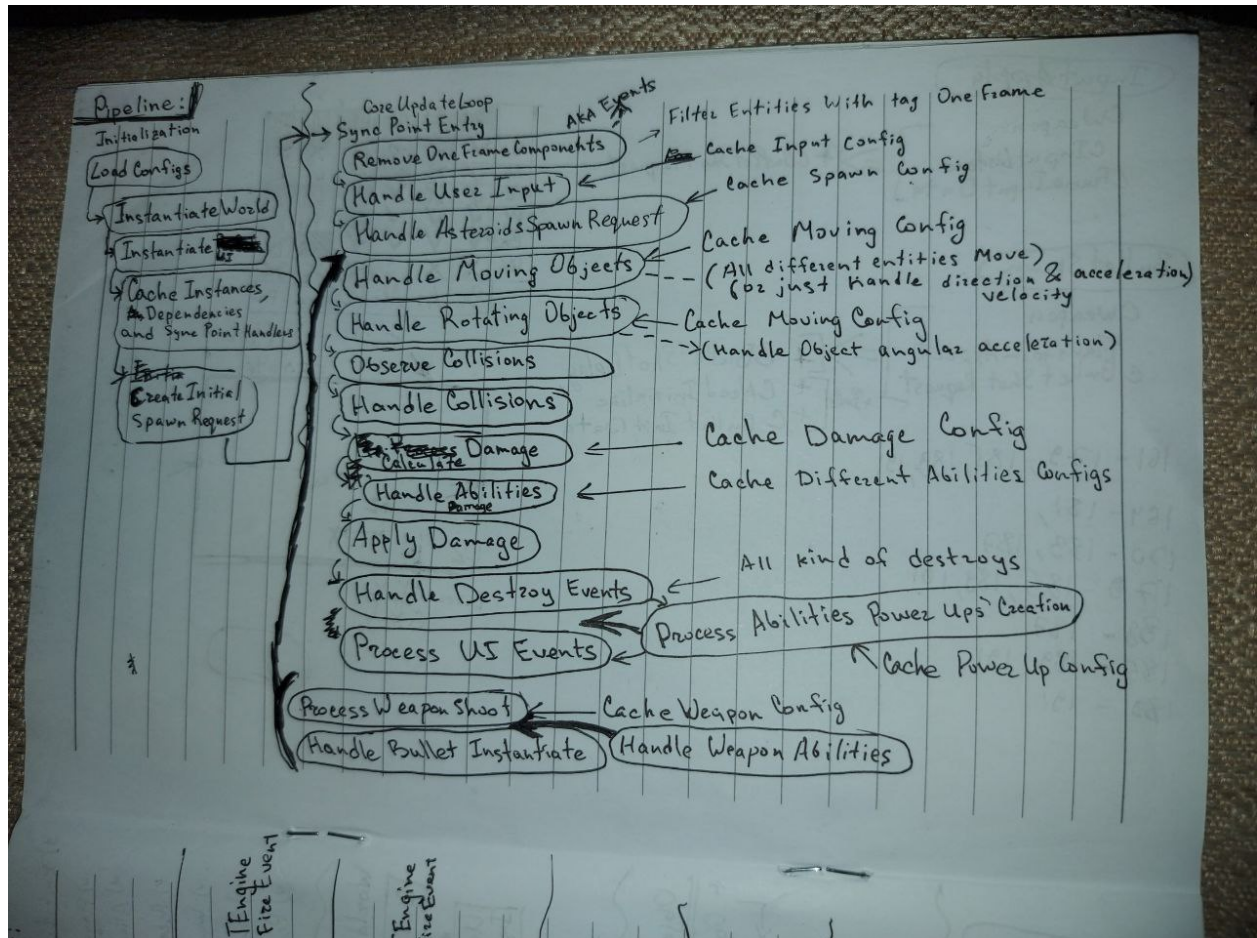 Pipeline:
Initialization
Load Configs
Instantiate World
Instantiate
UI
Cache Instances,
Dependencies
and Sync Point Handlers
Create Initial
Spawn Request
Core Update Loop
Sync Point Entry
AKA Events
Remove One Frame Components
Filter Entities With tag One Frame
Handle User Input
Cache Input Config
Handle Asteroids Spawn Request
Cache Spawn Config
Handle Moving Objects
Cache Moving Config
(All different entities Move)
(or just handle direction & acceleration)
velocity
Handle Rotating Objects
Cache Moving Config
(Handle Object angular acceleration)
Observe Collisions
Handle Collisions
Damage
Calculate
Cache Damage Config
Handle Abilities
Damage
Cache Different Abilities Configs
Apply Damage
Handle Destroy Events
All kind of destroys
Process Abilities Power Ups' Creation
Process UI Events
Cache Power Up Config
Process Weapon Shoot
Cache Weapon Config
Handle Bullet Instantiate
Handle Weapon Abilities
Engine
Fire Event
Engine
Event